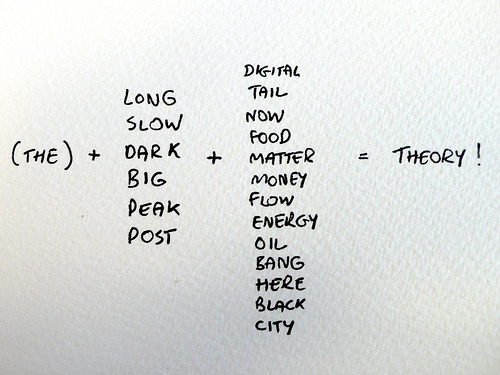 (THE) +
LONG
SLOW
DARK
BIG
PEAK
POST
+
DIGITAL
TAIL
NOW
FOOD
MATTER
MONEY
FLOW
ENERGY
OIL
BANG
HERE
BLACK
CITY
= THEORY!